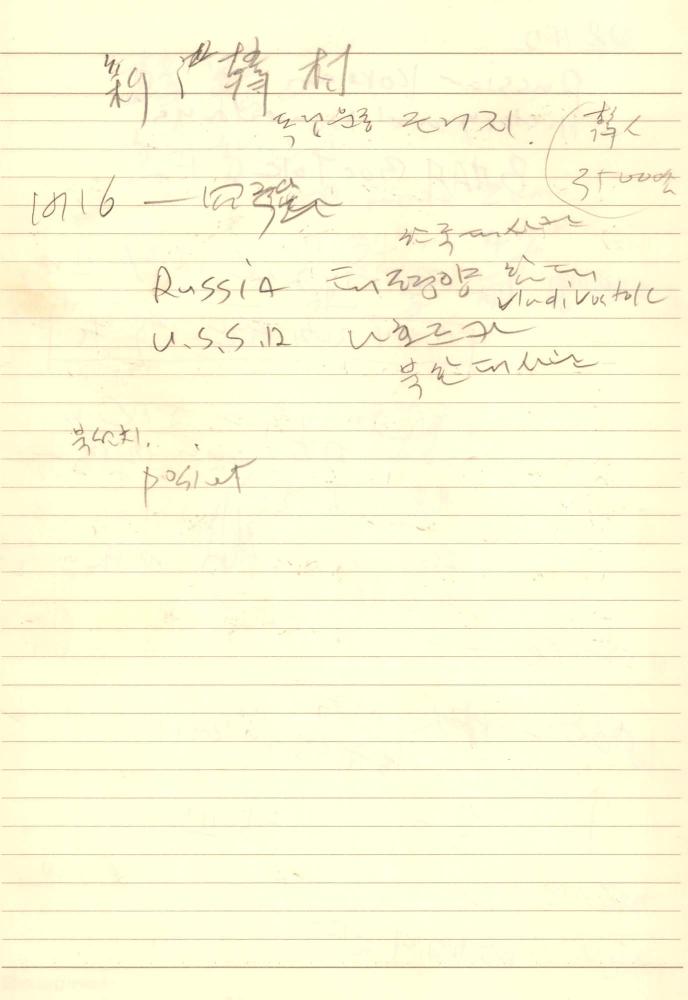 新韓村
독립운동 근거지.
韓人
1916 —
한국대사관
Russia 태평양 함대
Vladivostok
U.S.S.R 나호드카
북한대사관
posiet